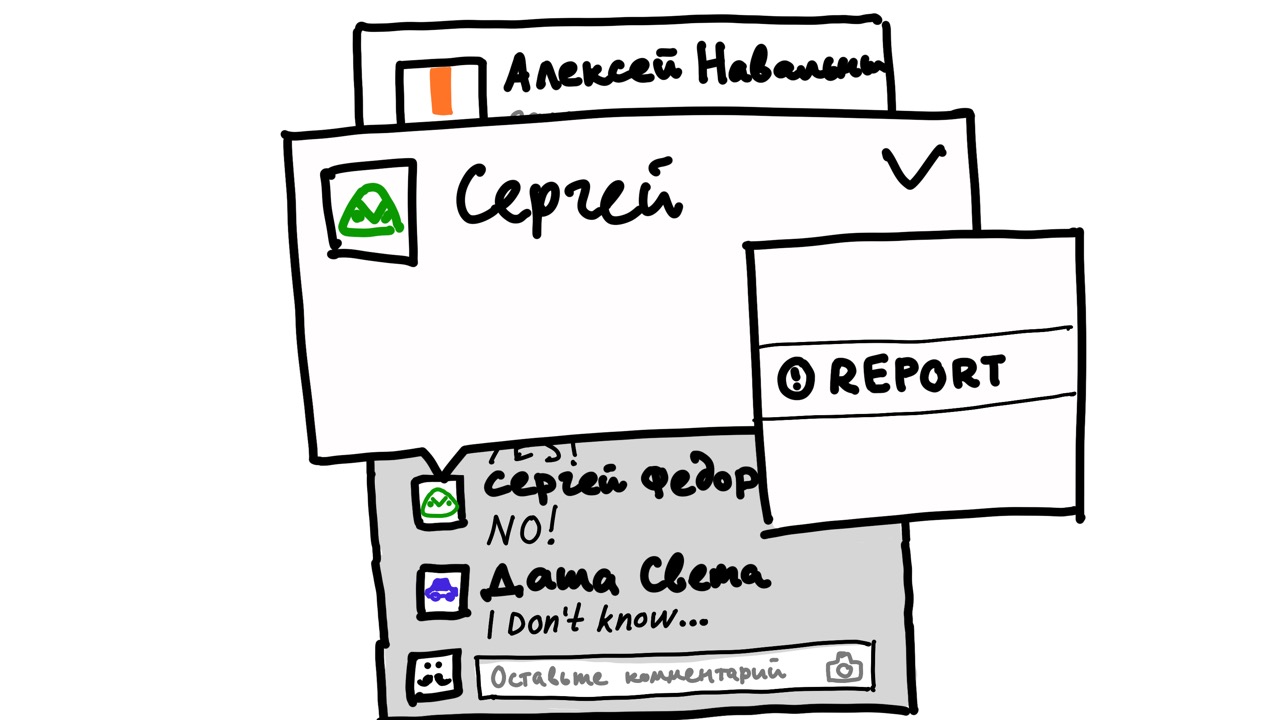 Алексей Навальны
Сергей
REPORT
YES!
Сергей Федор
NO!
Даша Света
I Don't know...
Оставьте комментарий